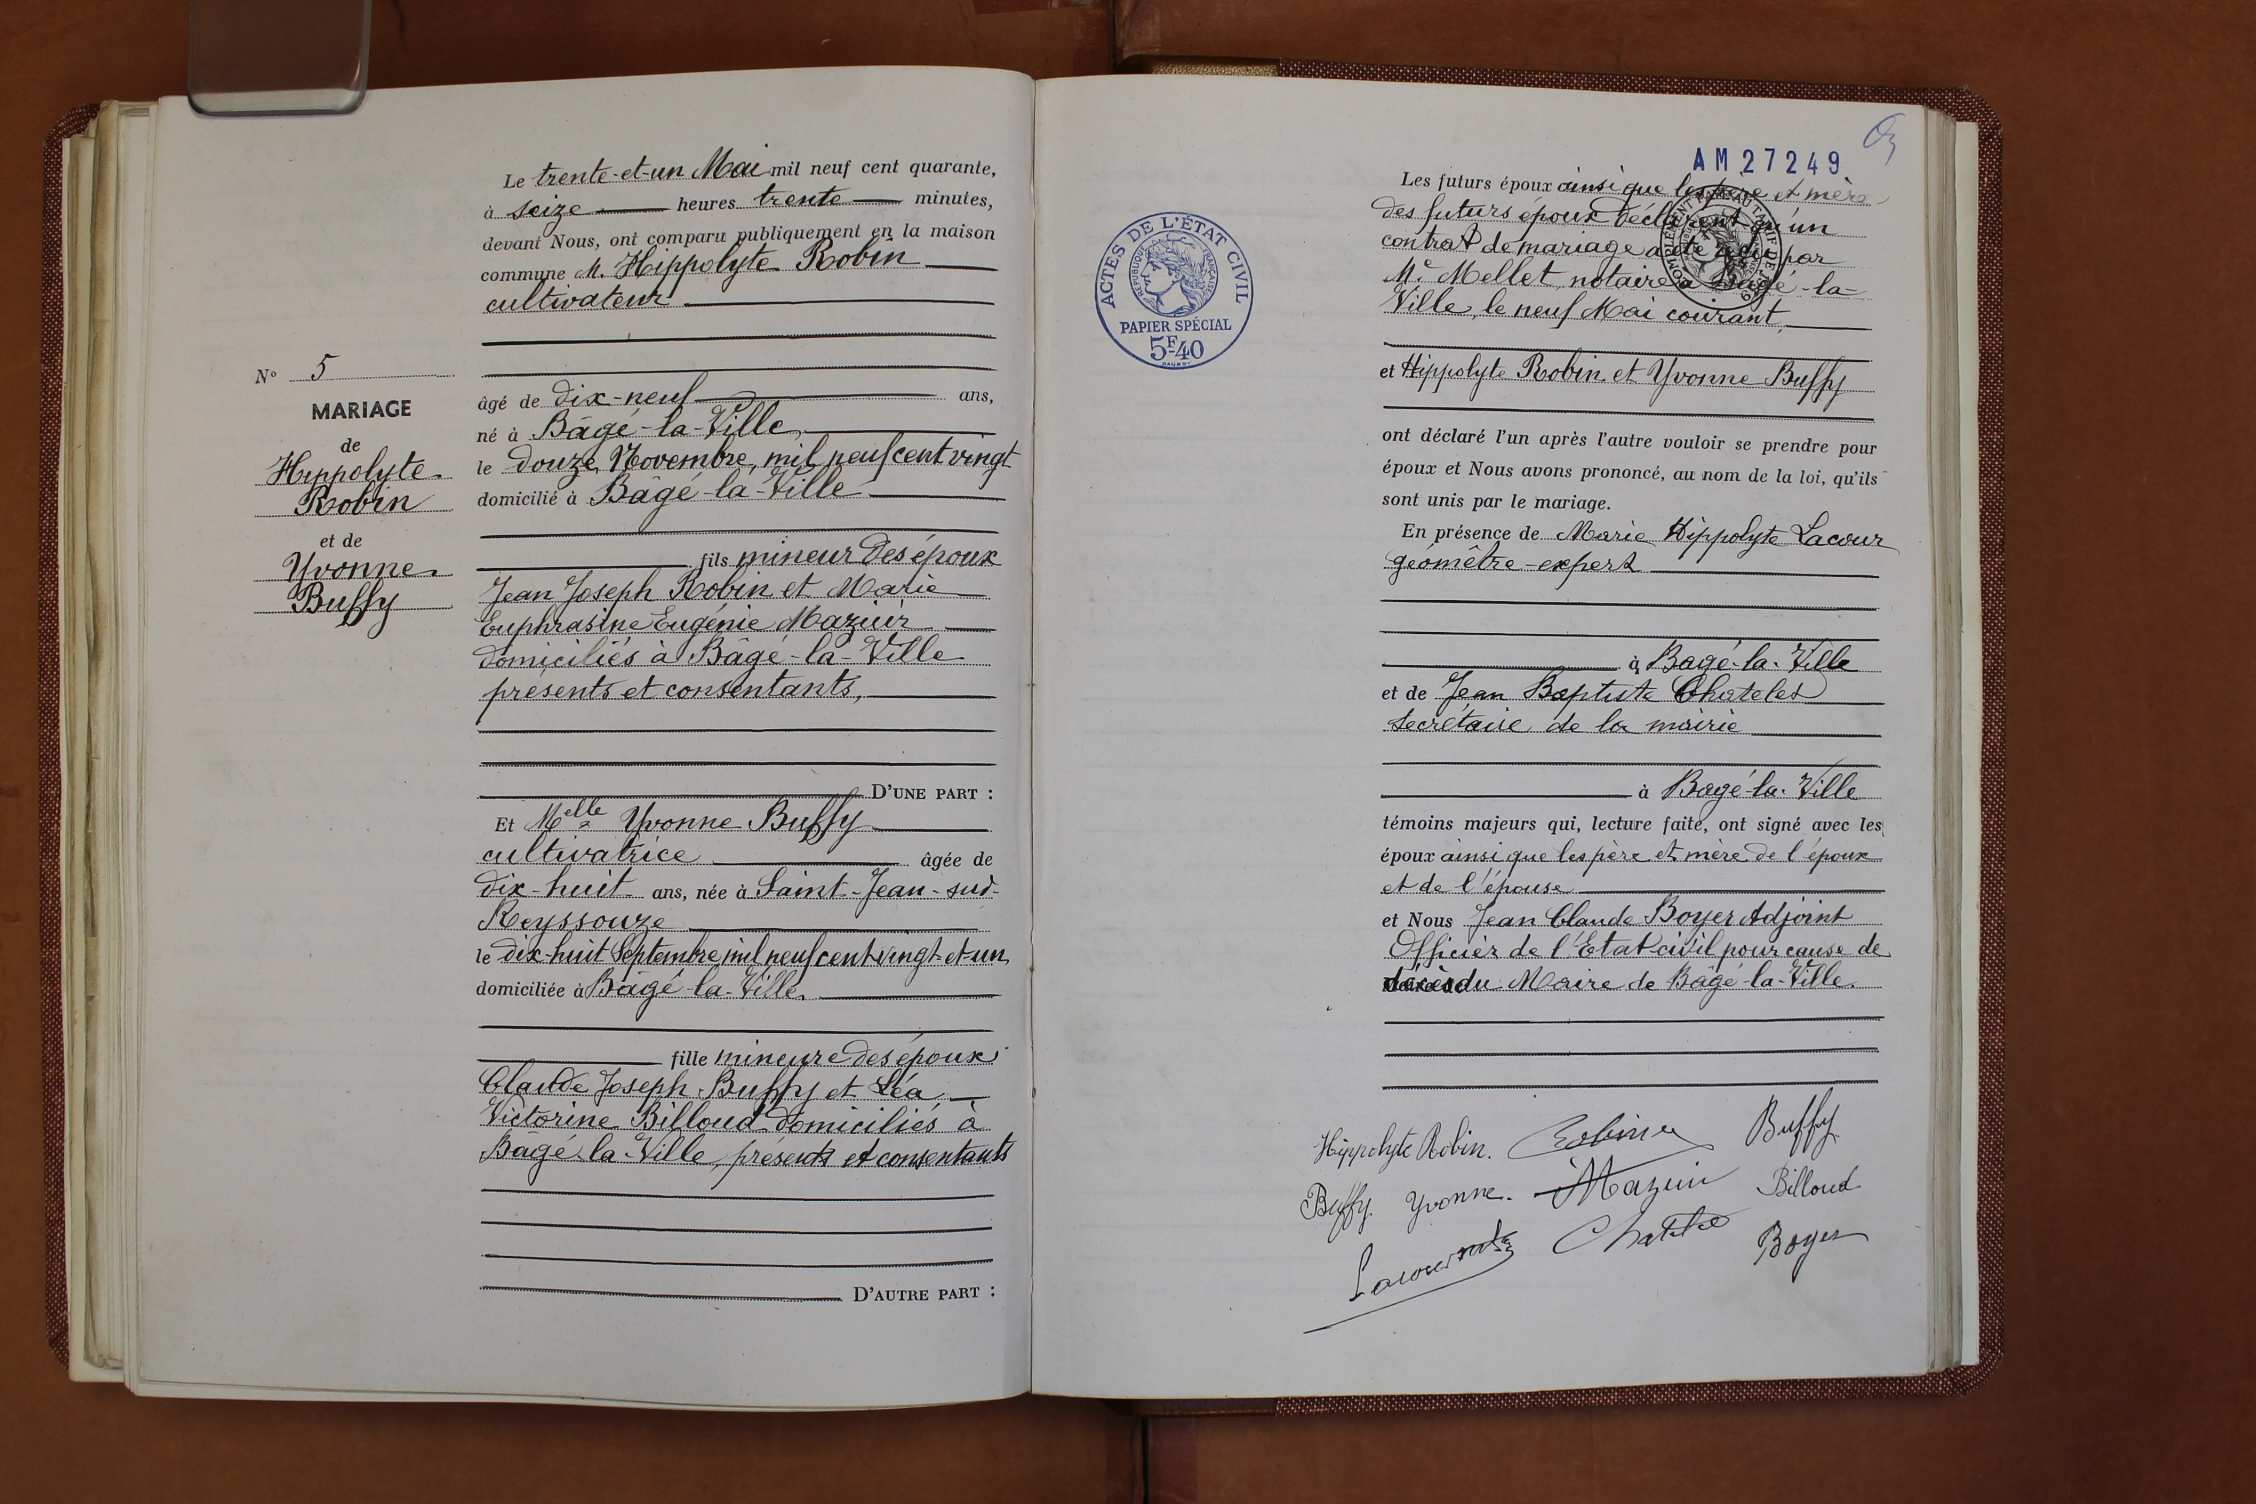 Le trente-et-un Mai mil neuf cent quarante,
à seize heures trente minutes,
devant Nous, ont comparu publiquement en la maison
commune M. Hippolyte Robin
cultivateur
N° 5
MARIAGE
de
Hippolyte
Robin
et de
Yvonne
Buffy
âgé de dix-neuf ans,
né à Bâgé-la-Ville
le douze Novembre, mil neuf cent vingt
domicilié à Bâgé-la-Ville
fils mineur des époux
Jean Joseph Robin et Marie
Euphrasine Eugénie Maziér
domiciliés à Bâgé-la-Ville
présents et consentants,
D'UNE PART :
Et Melle Yvonne Buffy
cultivatrice âgée de
dix-huit ans, née à Saint-Jean-sur-
Reyssouze
le dix-huit Septembre mil neuf cent vingt-et-un
domiciliée à Bâgé-la-Ville.
fille mineure des époux
Claude Joseph Buffy et Léa
Victorine Billoud domiciliés à
Bagé-la-Ville, présents et consentants
D'AUTRE PART :
AM27249
ACTES DE L'ÉTAT CIVIL
RÉPUBLIQUE FRANÇAISE
PAPIER SPÉCIAL
5F40
Les futurs époux ainsi que les père et mère
des futurs époux déclarent qu'un
contrat de mariage a été par
Me Mellet notaire à Bagé-la-
Ville, le neuf Mai courant,
et Hippolyte Robin et Yvonne Buffy
ont déclaré l'un après l'autre vouloir se prendre pour
époux et Nous avons prononcé, au nom de la loi, qu'ils
sont unis par le mariage.
En présence de Marie Hippolyte Lacour
géomêtre-expert
à Bagé-la-Ville
et de Jean Baptiste Chatelet
secrétaire de la mairie
à Bagé-la-Ville
témoins majeurs qui, lecture faite, ont signé avec les
époux ainsi que les père et mère de l'époux
et de l'épouse
et Nous Jean Claude Boyer Adjoint
Officier de l'Etat-civil pour cause de
décès du Maire de Bâgé-la-Ville.
Hippolyte Robin. Robin Buffy
Buffy. Yvonne. Mazuir Billoud
Lacour Chatelet Boyer